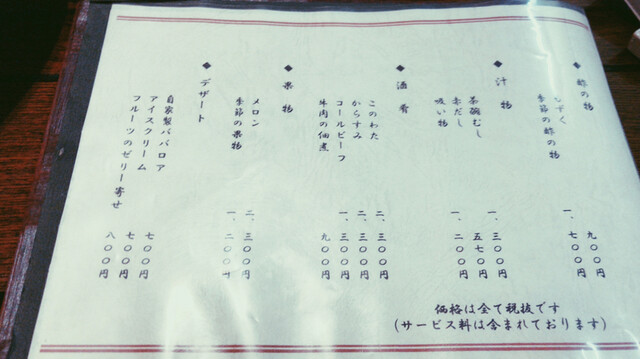 ◆ 酢の物
もずく 九〇〇円
季節の酢の物 一、七〇〇円
◆ 汁物
茶碗むし 一、三〇〇円
赤だし 五七〇円
吸い物 一、二〇〇円
◆ 酒肴
このわた 二、三〇〇円
からすみ 二、三〇〇円
コールビーフ 一、三〇〇円
牛肉の佃煮 九〇〇円
◆ 果物
メロン 二、三〇〇円
季節の果物 一、二〇〇円
◆ デザート
自家製ババロア 七〇〇円
アイスクリーム 七〇〇円
フルーツのゼリー寄せ 八〇〇円
価格は全て税抜です
(サービス料は含まれております)